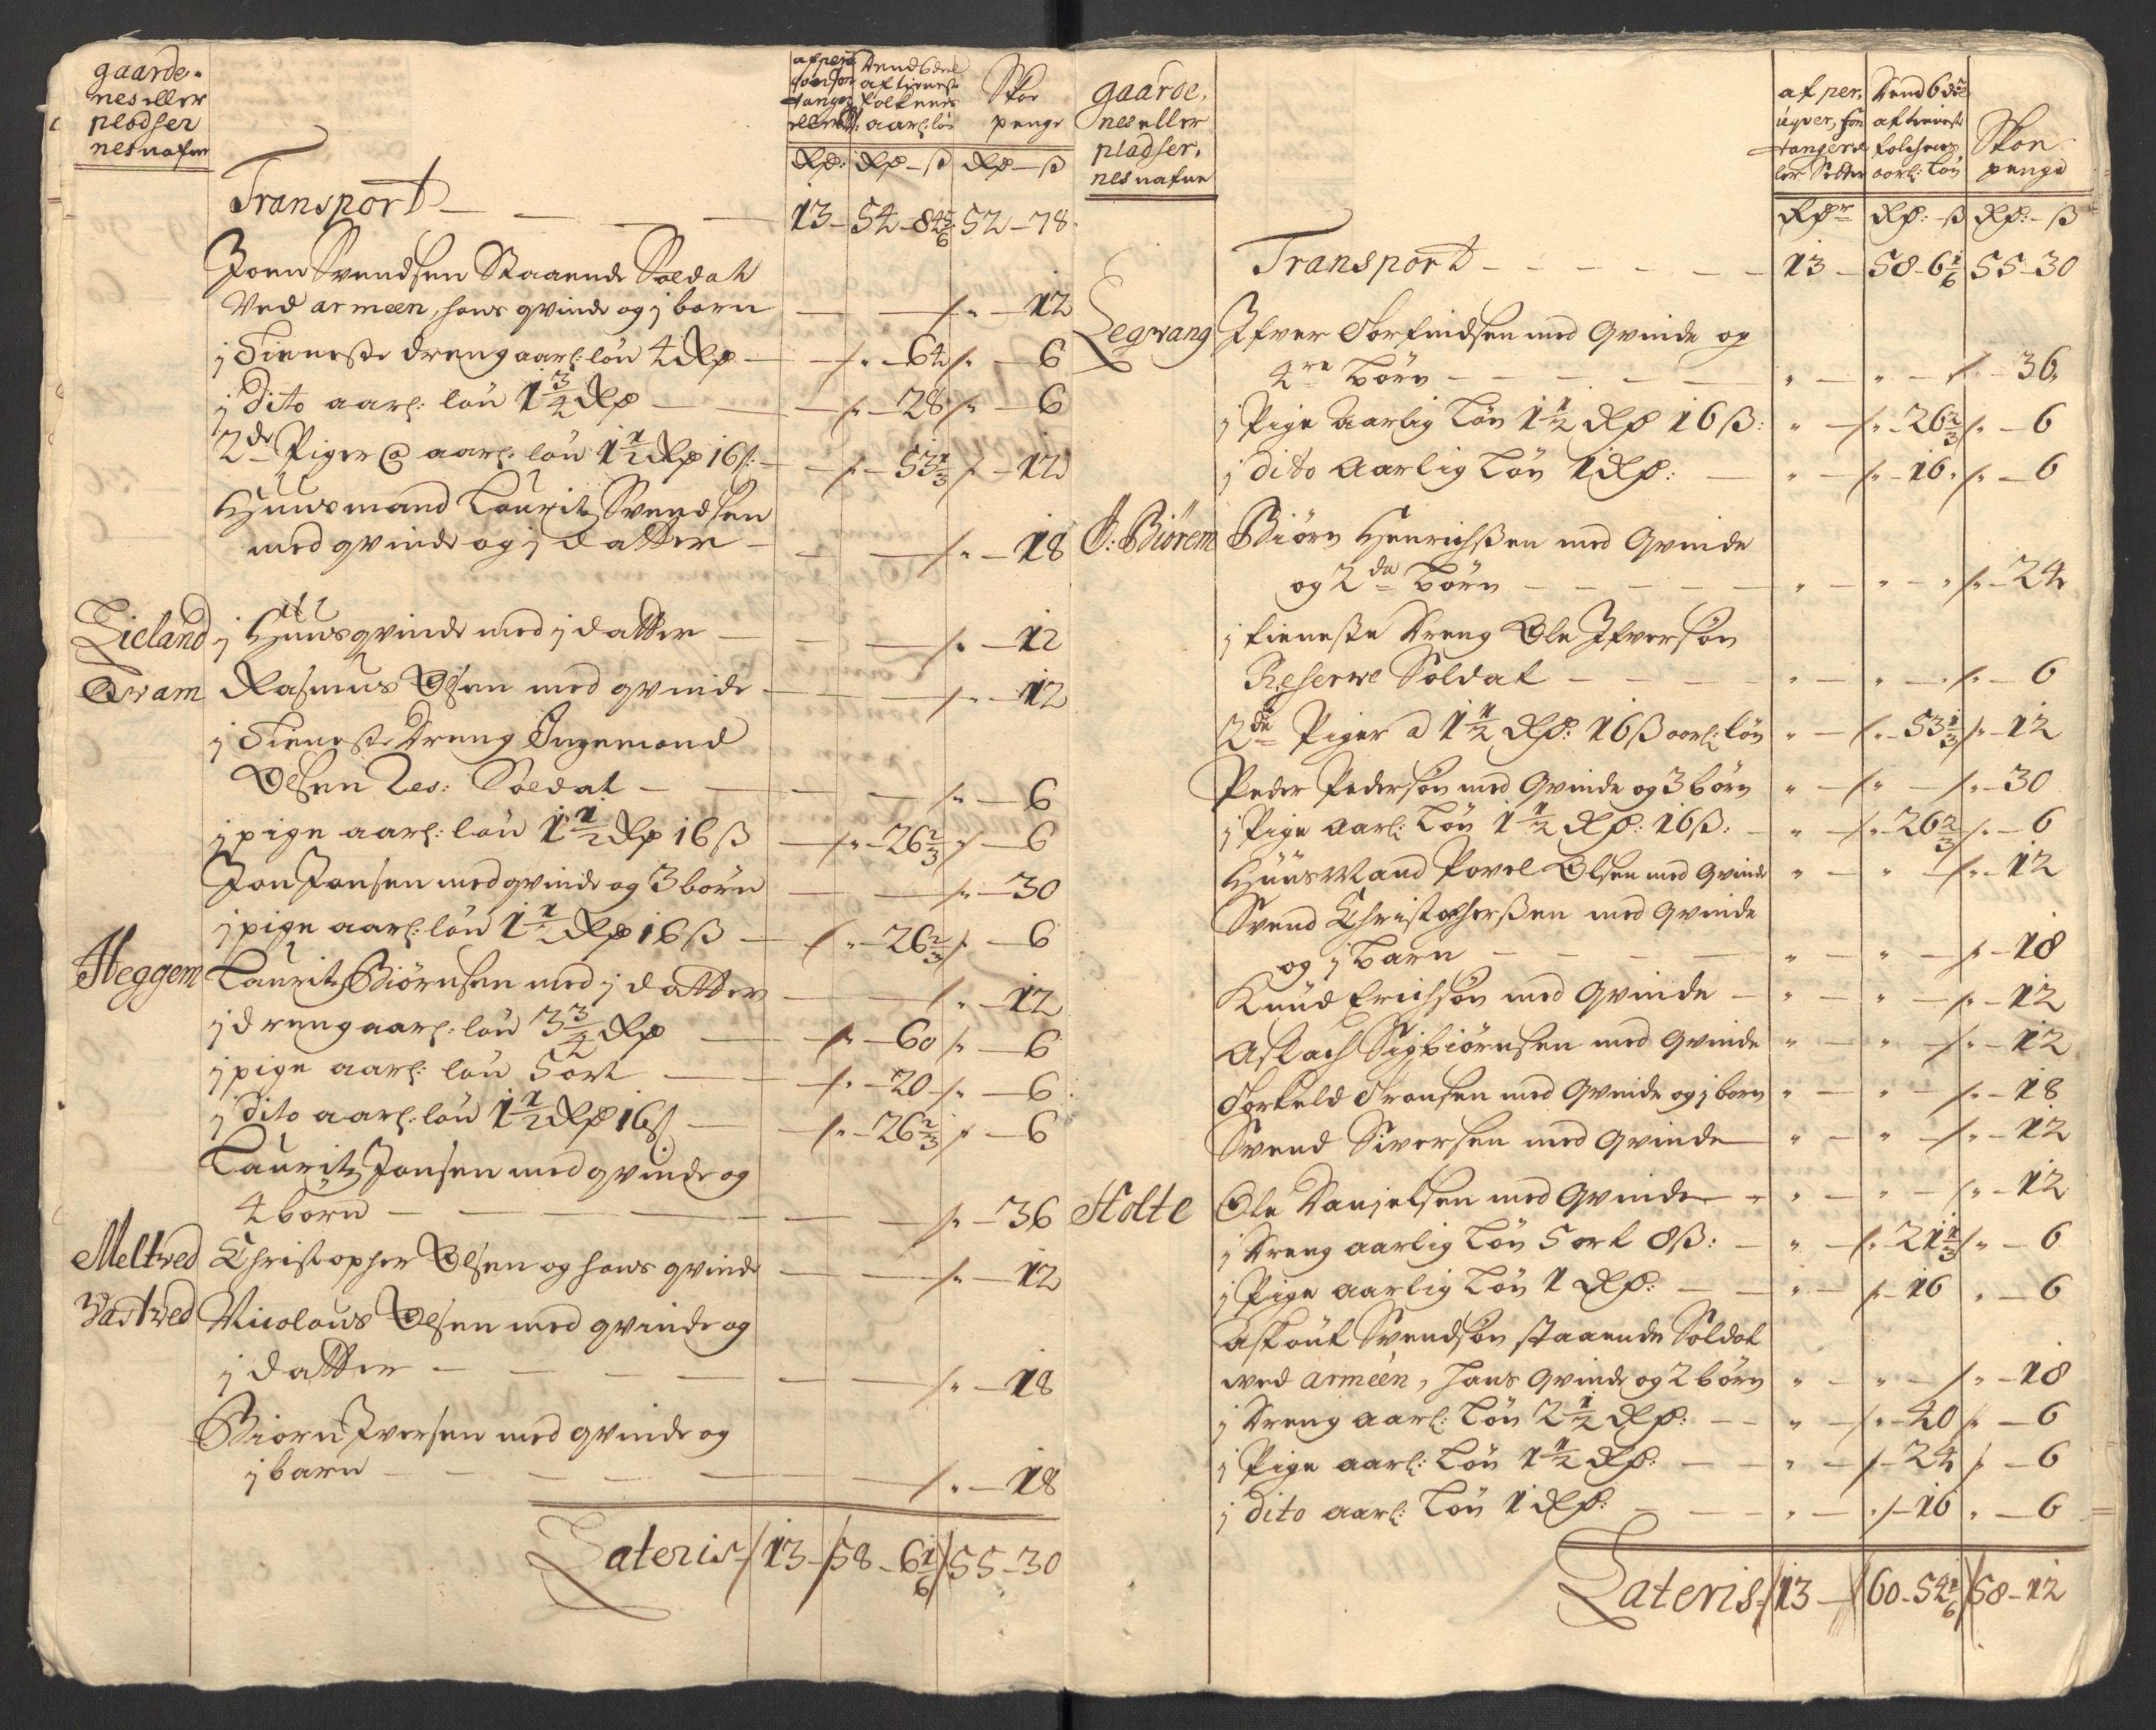 gaarde-
nes eller
pladser
nes nafne
Skoe
penge
Rd: Rd - ß Rd - ß
Transport - 13 - 54 - 8 4/6 52 - 78
Joen Svendsen Staaende Soldat
Ved armeen, hans qvinde og j barn - 12
j Tieneste dreng aarl: løn 4 Rd - 64 - 6
j dito aarl: løn 1 3/4 Rd - 28 - 6
2de Piger @ aarl: løn 1 1/2 Rd 16 ß - 53 1/3 - 12
Huusmand Lauritz Svendsen
med qvinde og j datter - 18
Lieland j Huusqvinde med j datter - 12
Qvam Rasmus Olsen med qvinde - 12
j Tieneste Dreng Ingemond
Olsen Res: Soldat - 6
j pige aarl: løn 1 1/2 Rd 16 ß - 26 2/3 - 6
Jon Jonsen med qvinde og 3 børn - 30
j pige aarl: løn 1 1/2 Rd 16 ß - 26 2/3 - 6
Heggem Lauritz Biørnsen med j datter - 12
j dreng aarl: løn 3 3/4 Rd - 60 - 6
j pige aarl: løn 5 ort - 20 - 6
j dito aarl: løn 1 1/2 Rd 16 ß - 26 2/3 - 6
Lauritz Jonsen med qvinde og
4 børn - 36
Meltved Christopher Olsen og hans qvinde - 12
Vastved Nicolaus Olsen med qvinde og
j datter - 18
Biørn Iversen med qvinde og
j barn - 18
Lateris 13 - 58 - 6 1/6 55 - 30
gaarde,
nes eller
pladser,
nes nafne
Skoe
penge
Rdr Rd: - ß Rd: - ß
Transport - 13 - 58 - 6 1/6 55 - 30
Legvang Ifver Torfindsen med Qvinde og
4re børn - 36
j Pige Aarlig Løn 1 1/2 Rd 16 ß: - 26 2/3 - 6
j dito Aarlig Løn 1 Rd: - 16 - 6
Biørem Biørn Henrichßen med Qvinde
og 2de børn - 24
j tieneste Dreng Ole Ifversøn
Reserve Soldat - 6
2de Piger a 1 1/2 Rd: 16 ß aarl: løn - 53 1/3 - 12
Peder Pedersøn med Qvinde og 3 børn - 30
j Pige Aarl: Løn 1 1/2 Rd: 16 ß: - 26 2/3 - 6
Huus Mand Povel Olsen med Qvinde - 12
Svend Christopherßen med Qvinde
og j barn - 18
Knud Erichsøn med Qvinde - 12
Aslach Sigbiørnsen med Qvinde - 12
Torkeld Tronsen med Qvinde og j barn - 18
Svend Siversen med Qvinde - 12
Holte Ole Danjelsen med Qvinde - 12
j Dreng aarlig Løn 5 ort 8 ß: - 21 1/3 - 6
j Pige aarlig Løn 1 Rd: - 16 - 6
Aslout Svendsøn staaende Soldat
ved armeen, hans Qvinde og 2 børn - 18
j Dreng aarl: Løn 2 1/2 Rd: - 40 - 6
j Pige aarl: Løn 1 1/2 Rd: - 24 - 6
j dito aarl: Løn 1 Rd: - 16 - 6
Lateris 13 - 60 - 54 1/6 58 - 12